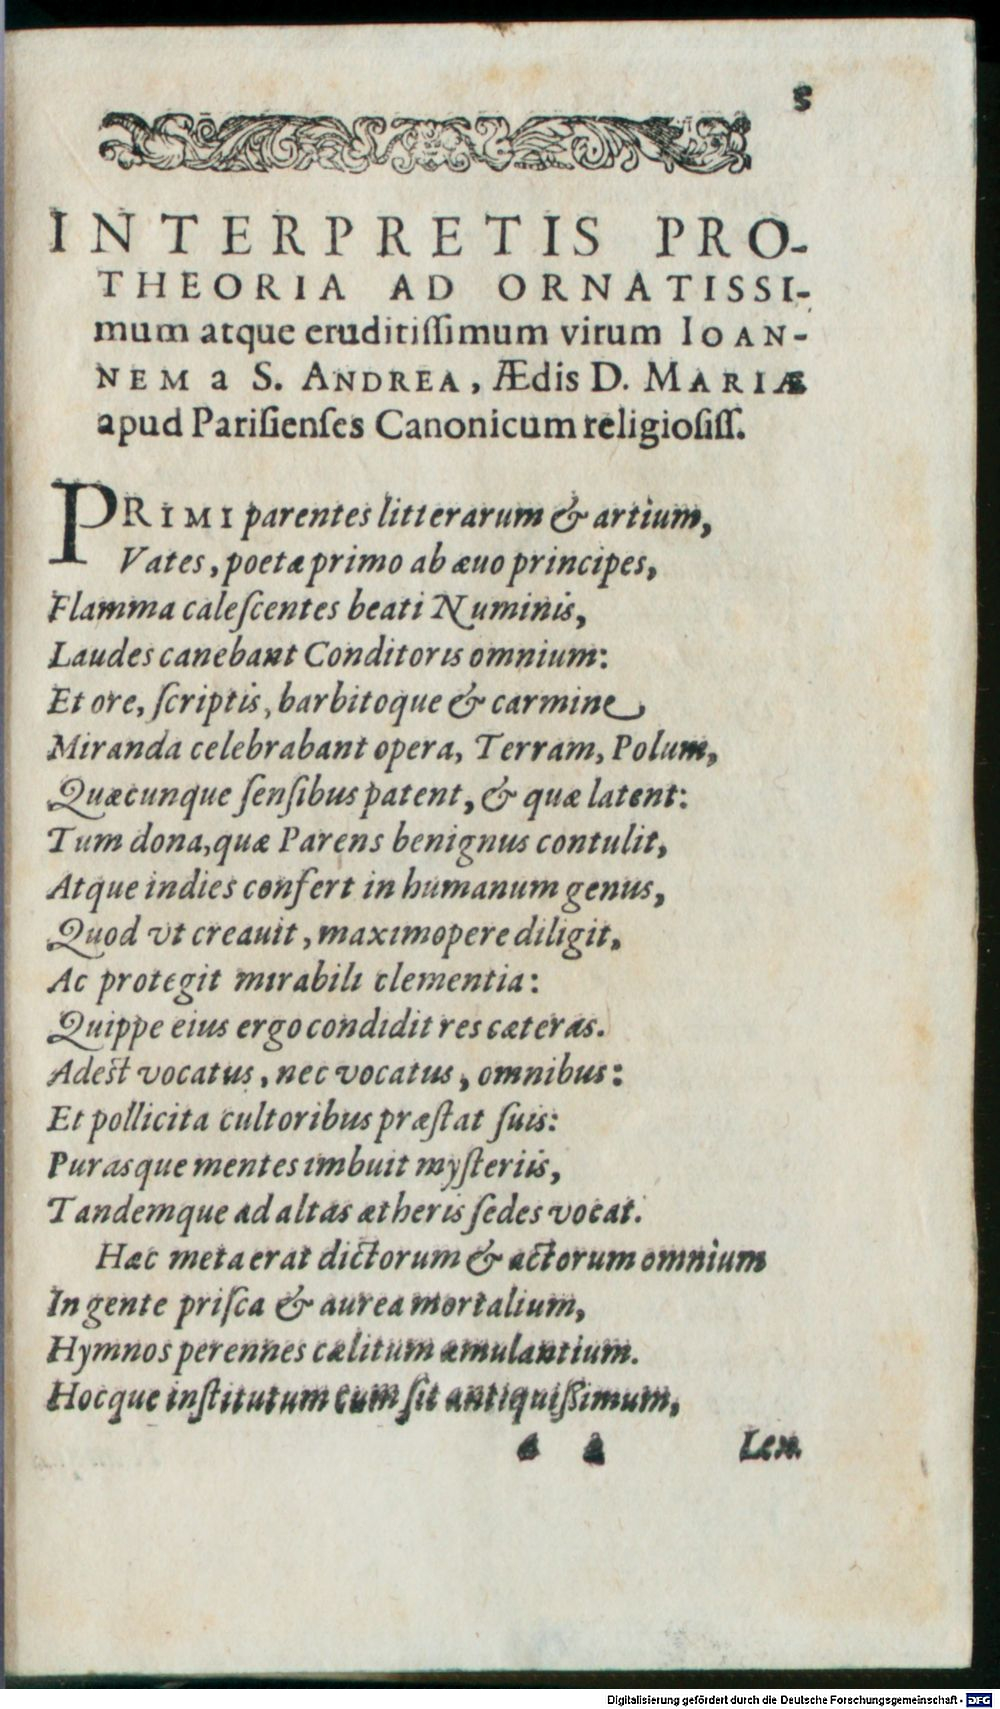 5
INTERPRETIS PRO-
THEORIA AD ORNATISSI-
mum atque eruditiſſimum virum IOAN-
NEM a S. ANDREA, Ædis D. MARIÆ
apud Pariſienſes Canonicum religioſiſſ.
PRIMI parentes litterarum & artium,
Vates, poetæ primo ab æuo principes,
Flamma caleſcentes beati Numinis,
Laudes canebant Conditoris omnium:
Et ore, ſcriptis, barbitoque & carmine
Miranda celebrabant opera, Terram, Polum,
Quæcunque ſenſibus patent, & quæ latent:
Tum dona, quæ Parens benignus contulit,
Atque indies confert in humanum genus,
Quod vt creauit, maximopere diligit,
Ac protegit mirabili clementia:
Quippe eius ergo condidit res cæteras.
Adest vocatus, nec vocatus, omnibus:
Et pollicita cultoribus præſtat ſuis:
Purasque mentes imbuit myſteriis,
Tandemque ad altas ætheris ſedes vocat.
Hæc meta erat dictorum & actorum omnium
In gente priſca & aurea mortalium,
Hymnos perennes cælitum æmulantium.
Hocque inſtitutum cum ſit antiquiſſimum,
Lex.
Digitalisierung gefördert durch die Deutsche Forschungsgemeinschaft - DFG